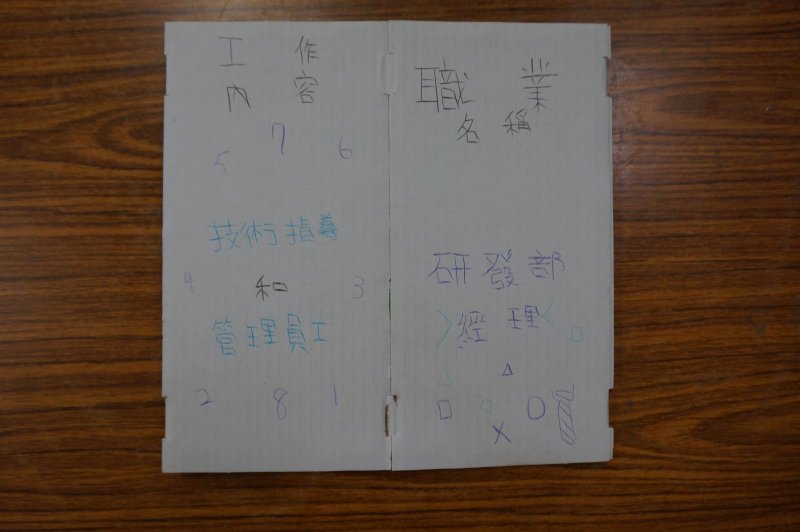 工作
內容
7
5 6
技術指導
4 和 3
管理員工
2 8 1
職業
名稱
研發部
經理